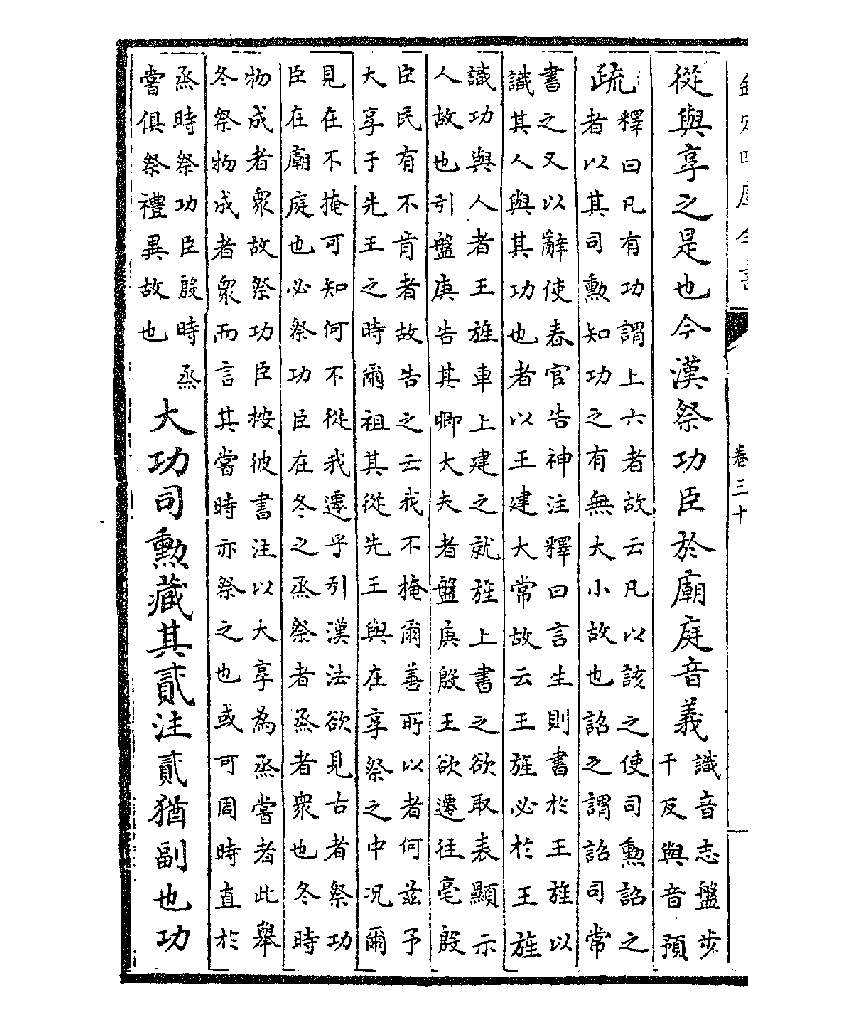 欽定四庫全書
卷三十
從與享之是也今漢祭功臣於廟庭音義
識音志盤步
干反與音預
疏
釋曰凡有功謂上六者故云凡以該之使司勲詔之
者以其司勲知功之有無大小故也詔之謂詔司常
書之又以辭使春官告神注釋曰言生則書於王旌以
識其人與其功也者以王建大常故云王旌必於王旌
識功與人者王旌車上建之就旌上書之欲取表顯示
人故也引盤庚告其卿大夫者盤庚殷王欲遷往亳殷
臣民有不肯者故告之云我不掩爾善所以者何兹予
大享于先王之時爾祖其從先王與在享祭之中況爾
見在不掩可知何不從我遷乎引漢法欲見古者祭功
臣在廟庭也必祭功臣在冬之烝祭者烝者衆也冬時
物成者衆故祭功臣按彼書注以大享為烝嘗者此舉
冬祭物成者衆而言其嘗時亦祭之也或可周時直於
烝時祭功臣殷時烝
嘗俱祭禮異故也
大功司勲藏其貳注貳猶副也功